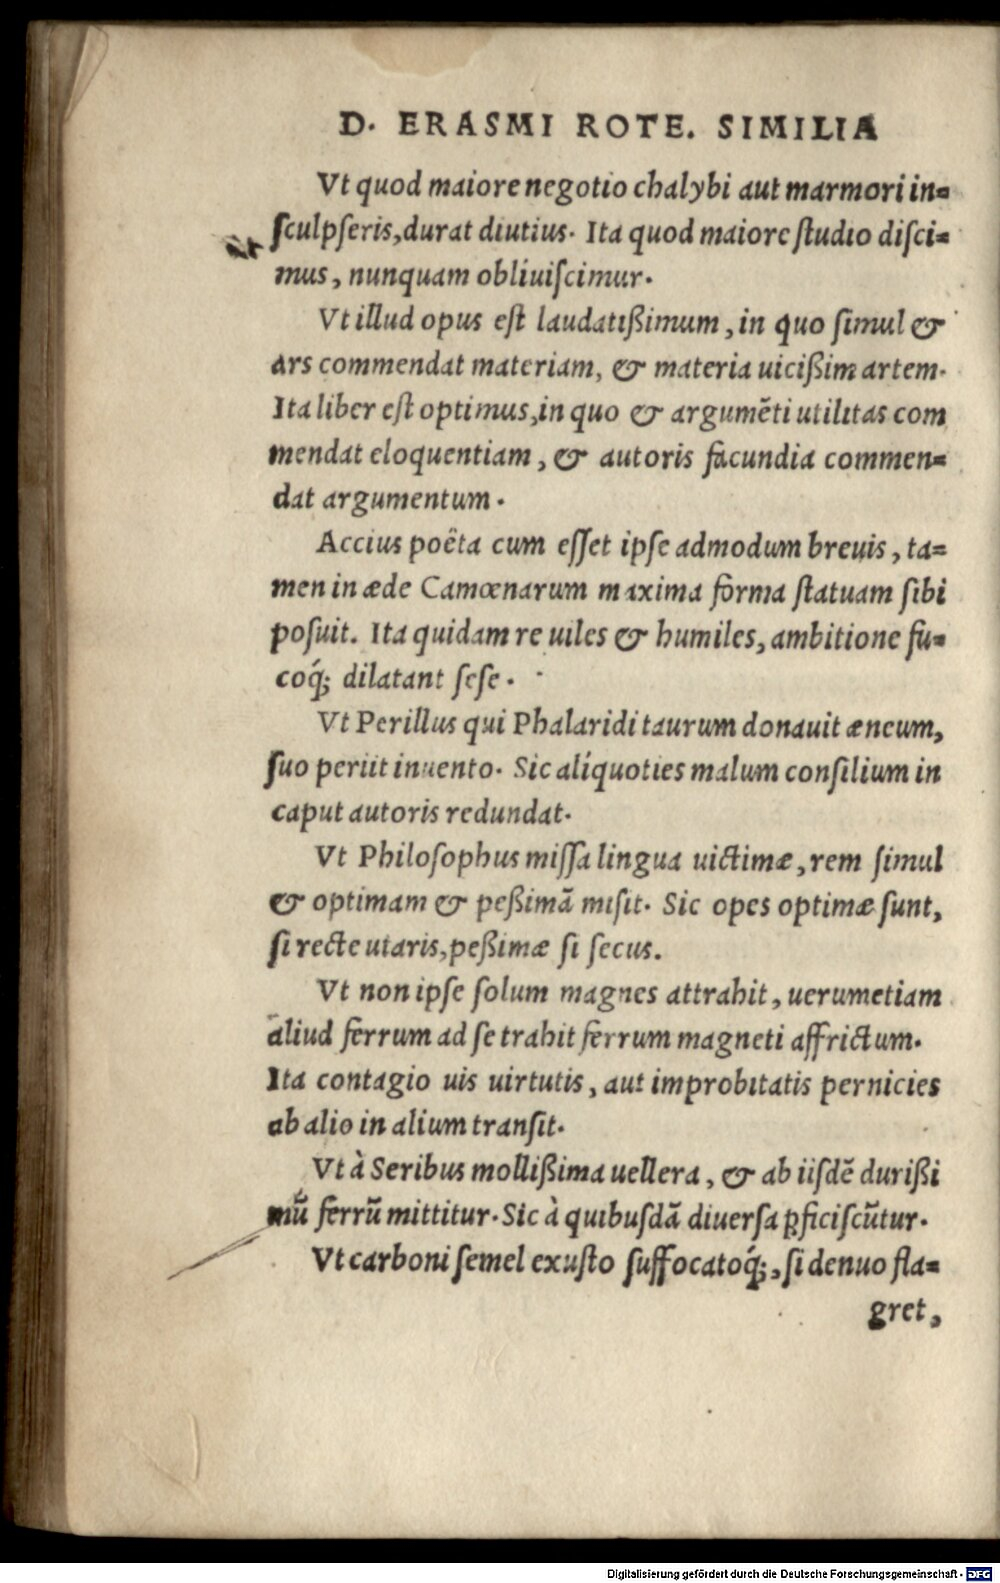 D. ERASMI ROTE. SIMILIA
Vt quod maiore negotio chalybi aut marmori in=
sculpseris, durat diutius. Ita quod maiore studio disci=
mus, nunquam obliuiscimur.
Vt illud opus est laudatißimum, in quo simul &
ars commendat materiam, & materia uicißim artem.
Ita liber est optimus, in quo & argumẽti utilitas com
mendat eloquentiam, & autoris facundia commen=
dat argumentum.
Accius poëta cum esset ipse admodum breuis, ta=
men in æde Camœnarum maxima forma statuam sibi
posuit. Ita quidam re uiles & humiles, ambitione fu=
coq́; dilatant sese.
Vt Perillus qui Phalaridi taurum donauit æneum,
suo periit inuento. Sic aliquoties malum consilium in
caput autoris redundat.
Vt Philosophus missa lingua uictimæ, rem simul
& optimam & peßimã misit. Sic opes optimæ sunt,
si recte utaris, peßimæ si secus.
Vt non ipse solum magnes attrahit, uerumetiam
aliud ferrum ad se trahit ferrum magneti affrictum.
Ita contagio uis uirtutis, aut improbitatis pernicies
ab alio in alium transit.
Vt à Seribus mollißima uellera, & ab iisdẽ durißi
mũ ferrũ mittitur. Sic à quibusdã diuersa ꝓficiscũtur.
Vt carboni semel exusto suffocatoq́;, si denuo fla=
gret,
Digitalisierung gefördert durch die Deutsche Forschungsgemeinschaft - DFG